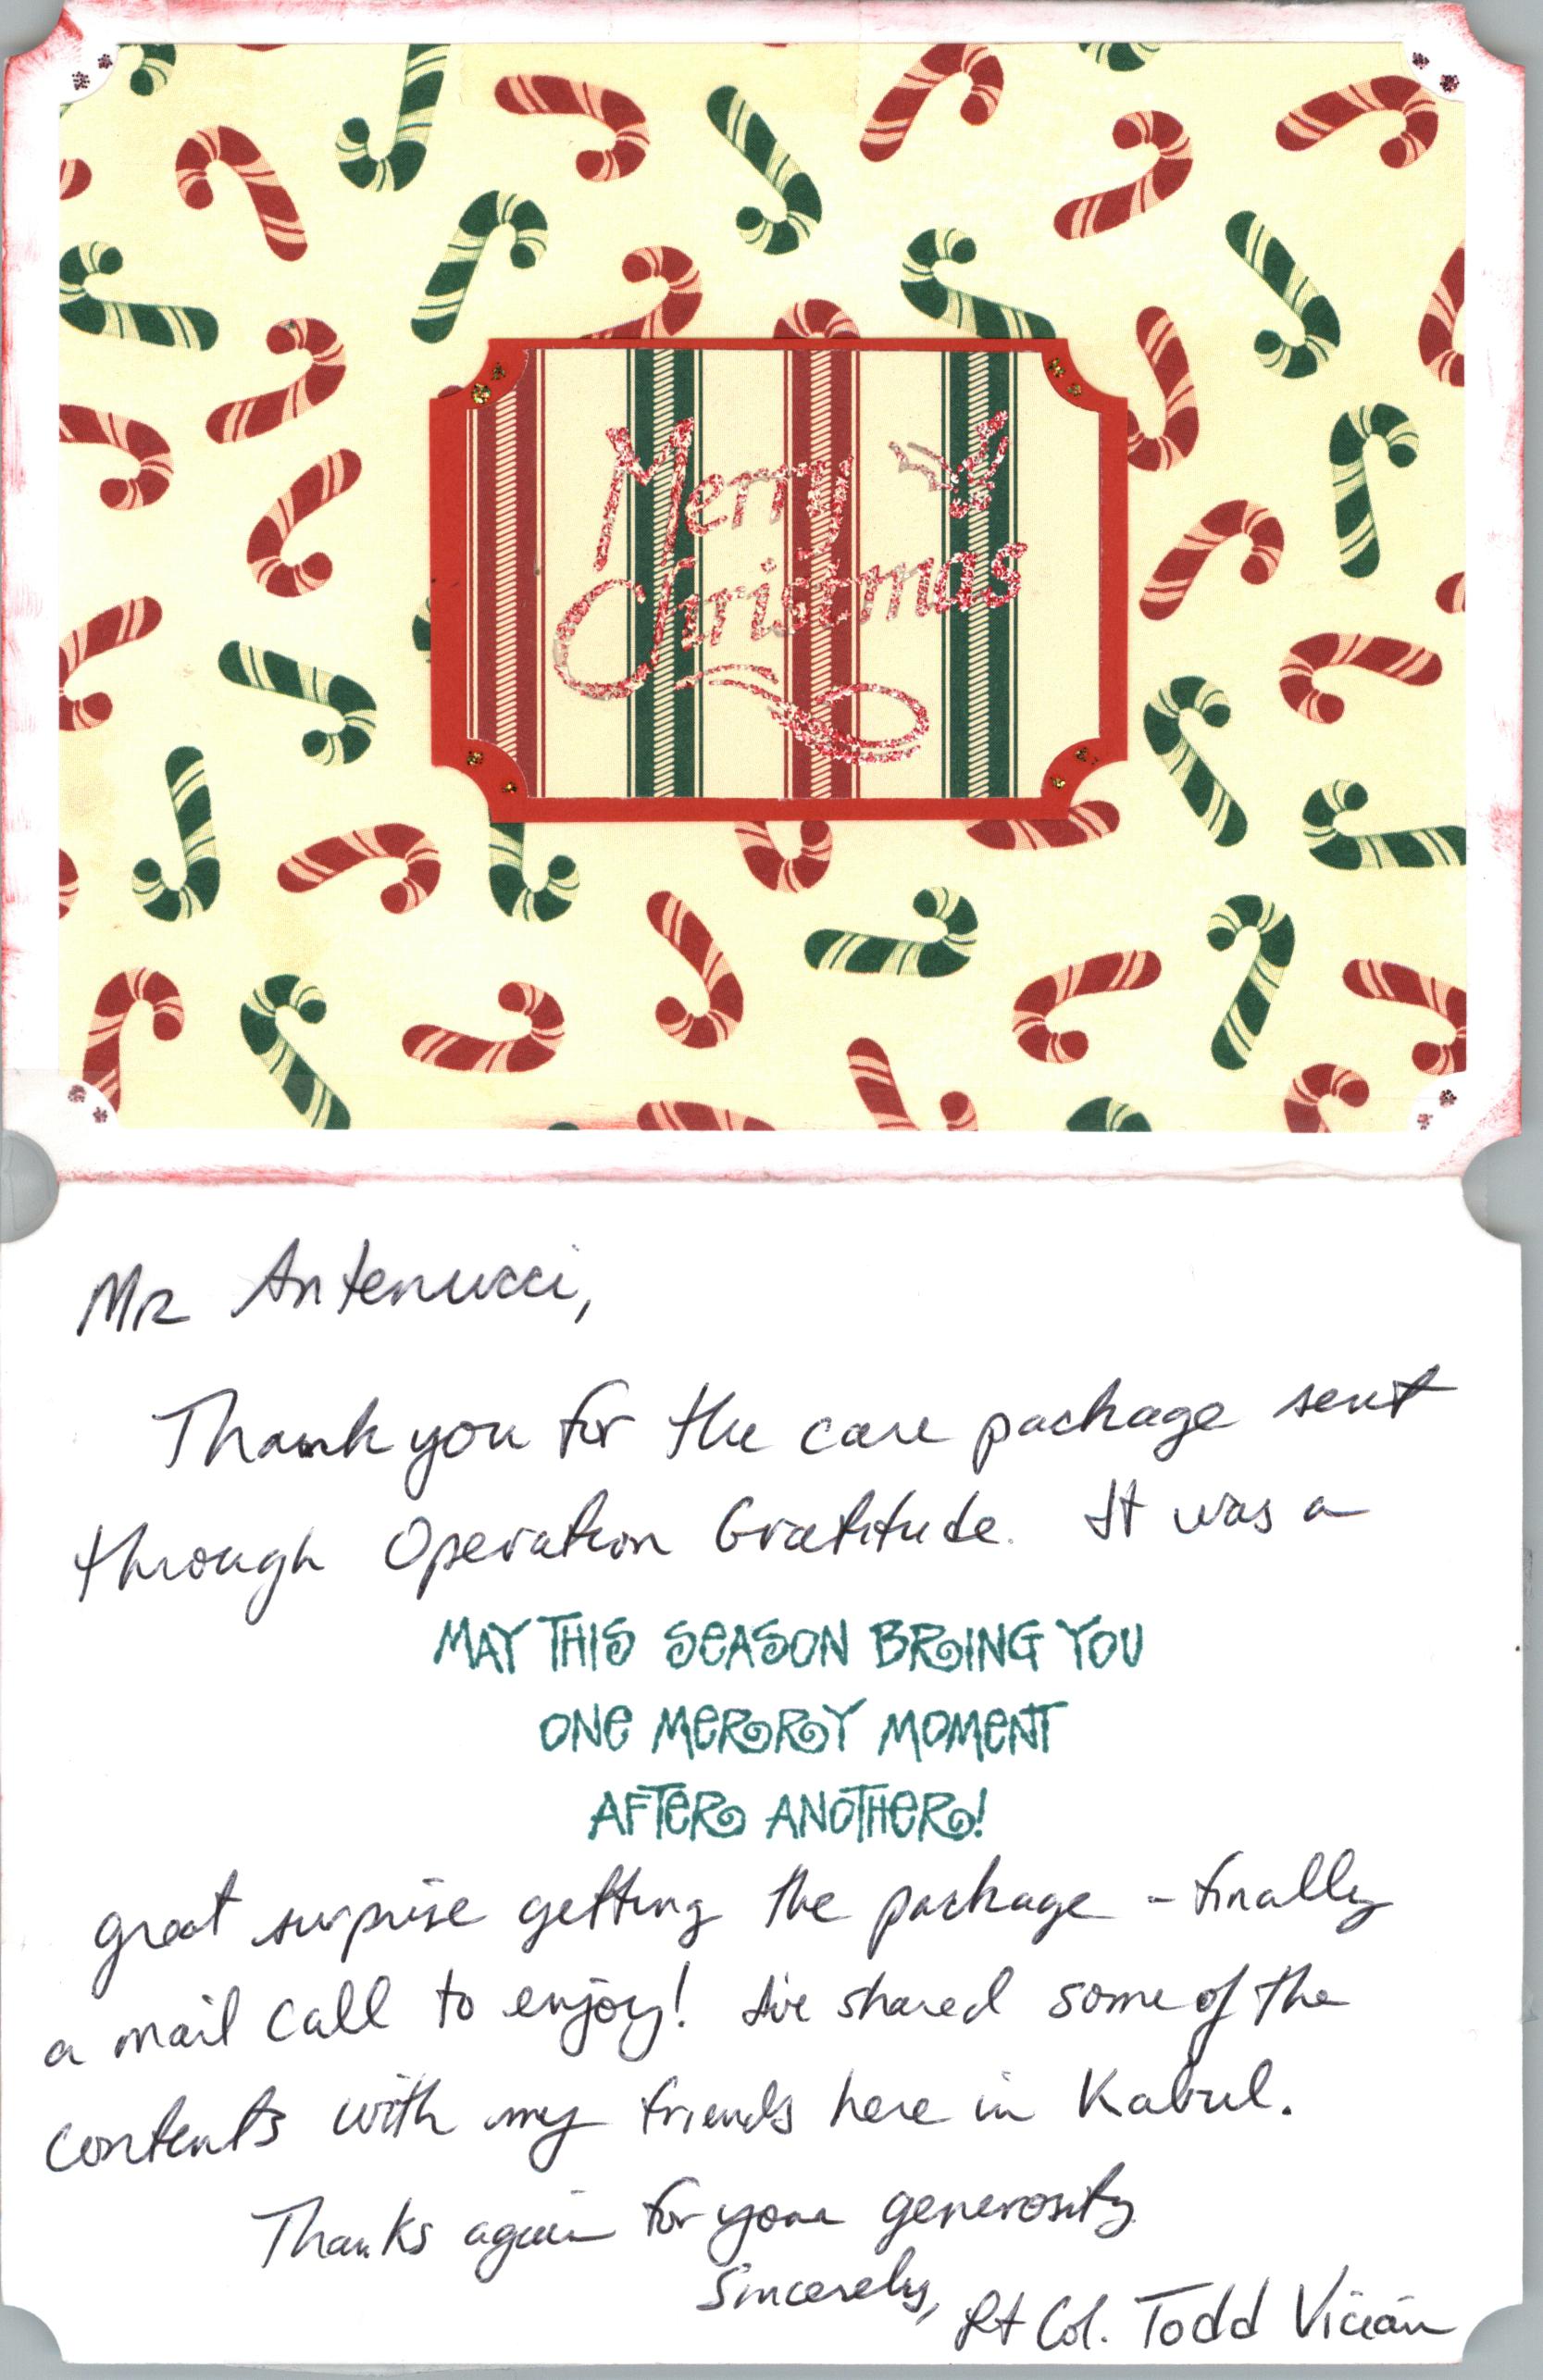 Merry
Christmas
Mr Antenucci,
Thank you for the care package sent
through Operation Gratitude. It was a
MAY THIS SEASON BRING YOU
ONE MERRY MOMENT
AFTER ANOTHER!
great surprise getting the package - finally
a mail call to enjoy! I've shared some of the
contents with my friends here in Kabul.
Thanks again for your generosity
Sincerely, Lt Col. Todd Vician